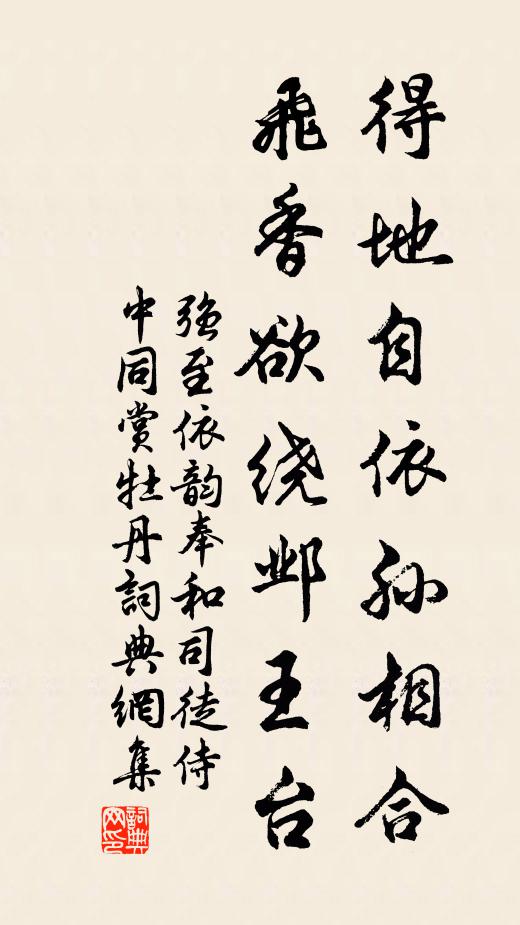 得地自依孙相合
飛香欲绕邺王台
強至依韵奉和司徒侍
中同赏牡丹詞典網集
詞典
网印